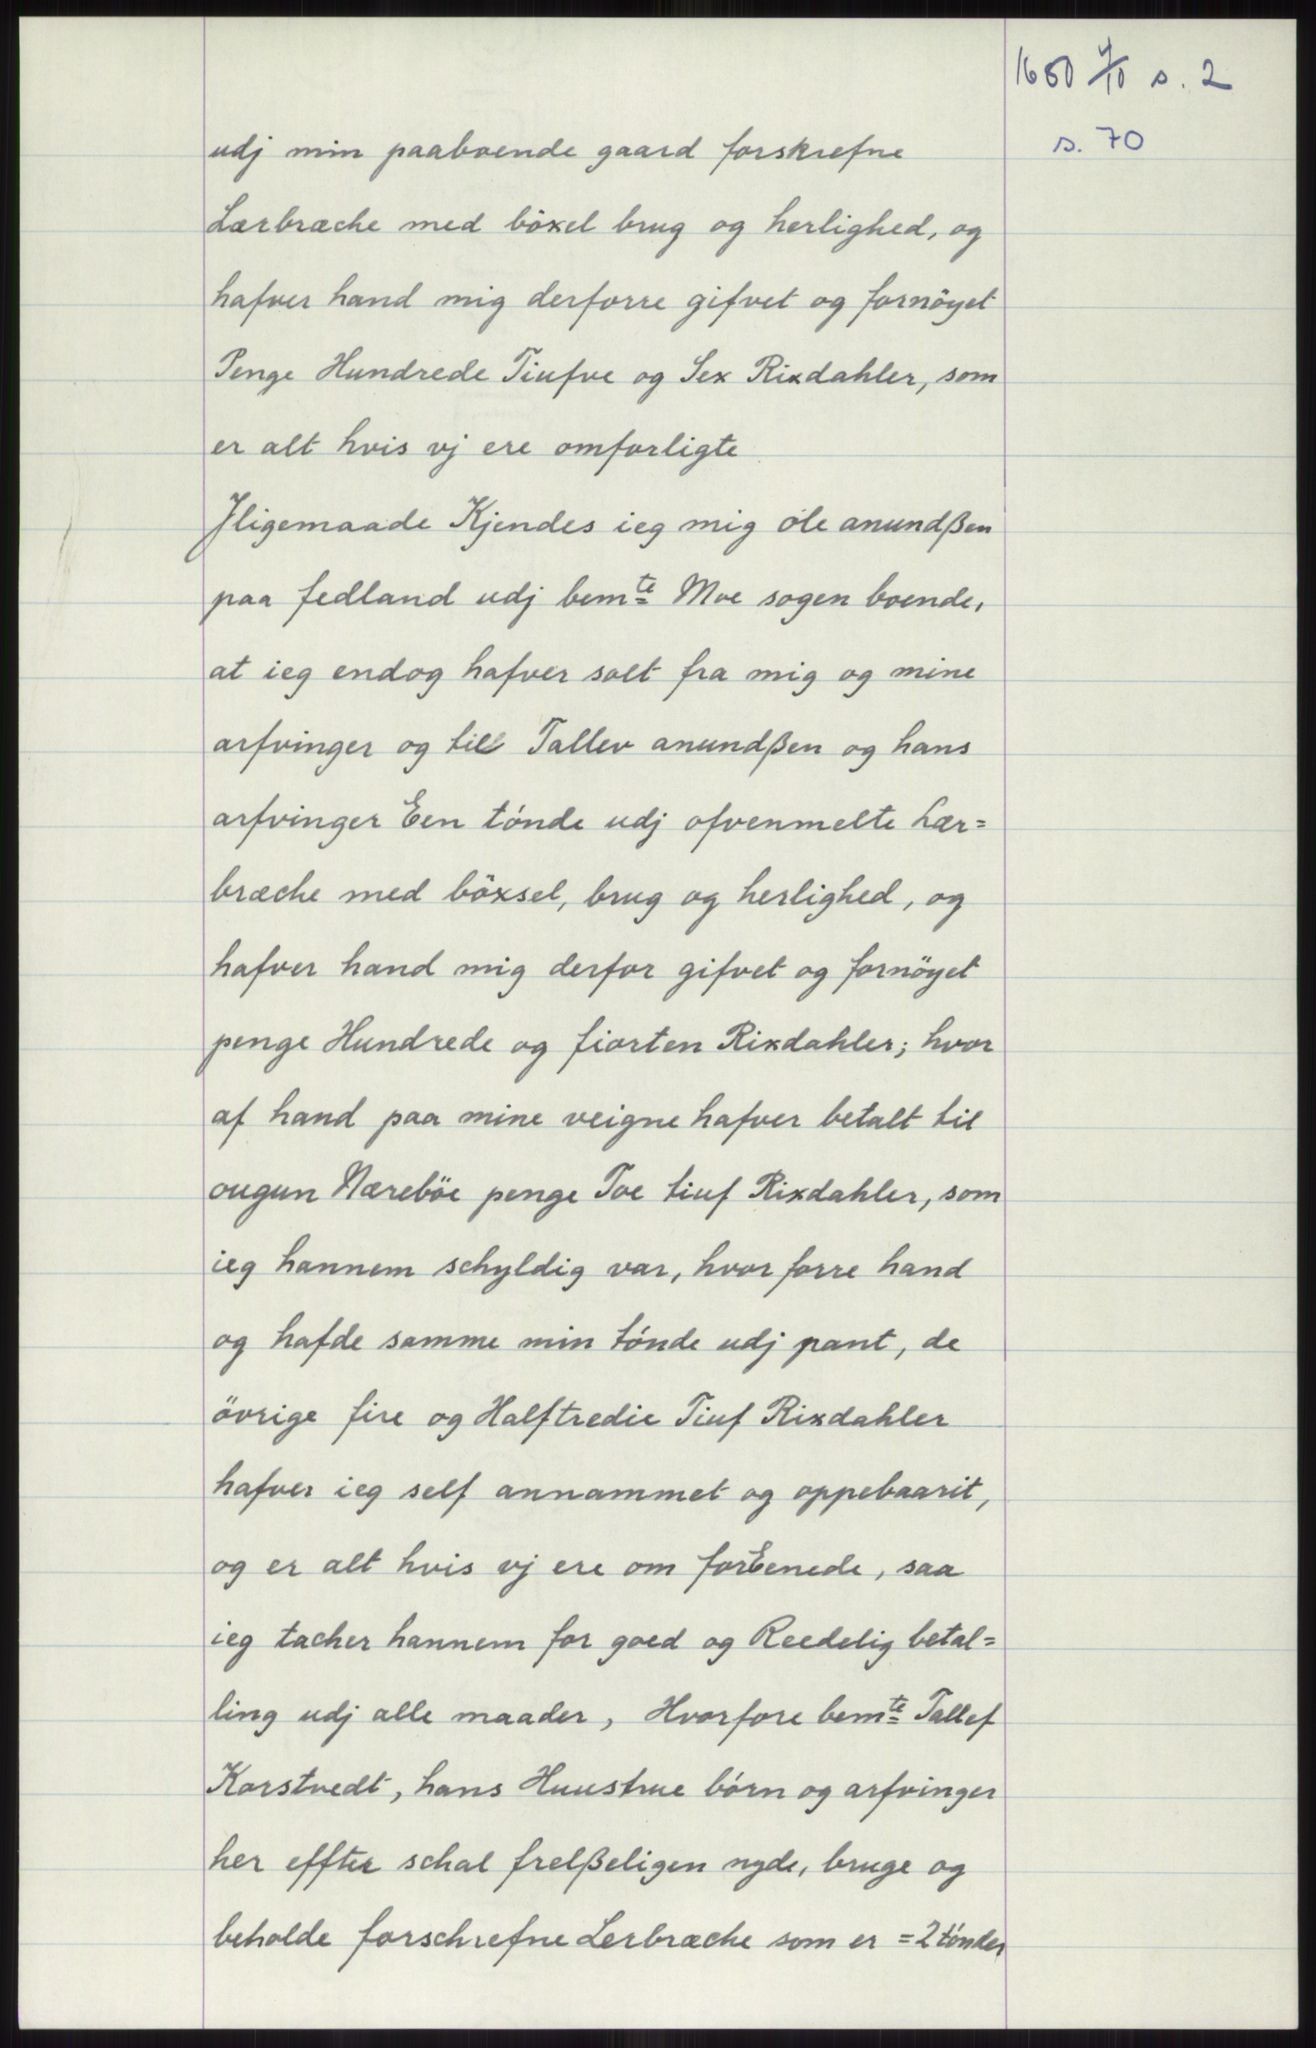 1650 4/10 s. 2
s. 70
udj min paaboende gaard forskrefne
Lærbræche med böxel brug og herlighed, og
hafver hand mig derforre gifvet og fornöyet
Penge Hundrede Tiufve og Sex Rixdahler, som
er alt hvis vj ere omforligte
Jligemaade Kjendes ieg mig ole anundßen
paa fedland udj bemte Moe sogen boende,
at ieg endog hafver solt fra mig og mine
arfvinger og till Tallev anundßen og hans
arfvinger Een tónde udj ofvenmelte Lær=
bræche med böxsel, brug og herlighed, og
hafver hand mig derfor gifvet og fornöyet
penge Hundrede og fiorten Rixdahler; hvor
af hand paa mine veigne hafver betalt til
ougun Næreböe penge Toe tiuf Rixdahler, som
ieg hannem schyldig var, hvor forre hand
og hafde samme min tónde udj pant, de
övrige fire og Halftredie Tiuf Rixdahler
hafver ieg self annammet og oppebaarit,
og er alt hvis vj ere om forEenede, saa
ieg tacher hannem for goed og Reedelig betal=
ling udj alle maader, Hvorfore bemte Tallef
Korstvedt, hans Huustrue börn og arfvinger
her effter schal frelßeligen nyde, bruge og
beholde forschrefne Lerbræche som er =2 tónder